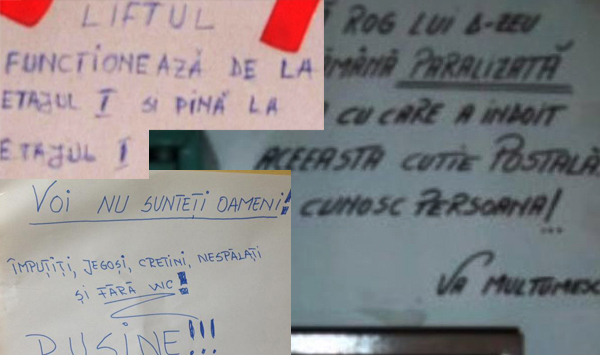 LIFTUL
FUNCȚIONEAZĂ DE LA
ETAJUL I și PÎNĂ LA
ETAJUL I
ROG LUI D-ZEU
PARALIZATĂ
CU CARE A INDOIT
ACEEASTA CUTIE POSTALĂ
CUNOSC PERSOANA!
...
VĂ MULTUMESC
VOI NU SUNTEȚI OAMENI!
ÎMPUȚIȚI, JEGOȘI, CRETINI, NESPĂLAȚI
ȘI FĂRĂ WC!
RUȘINE!!!